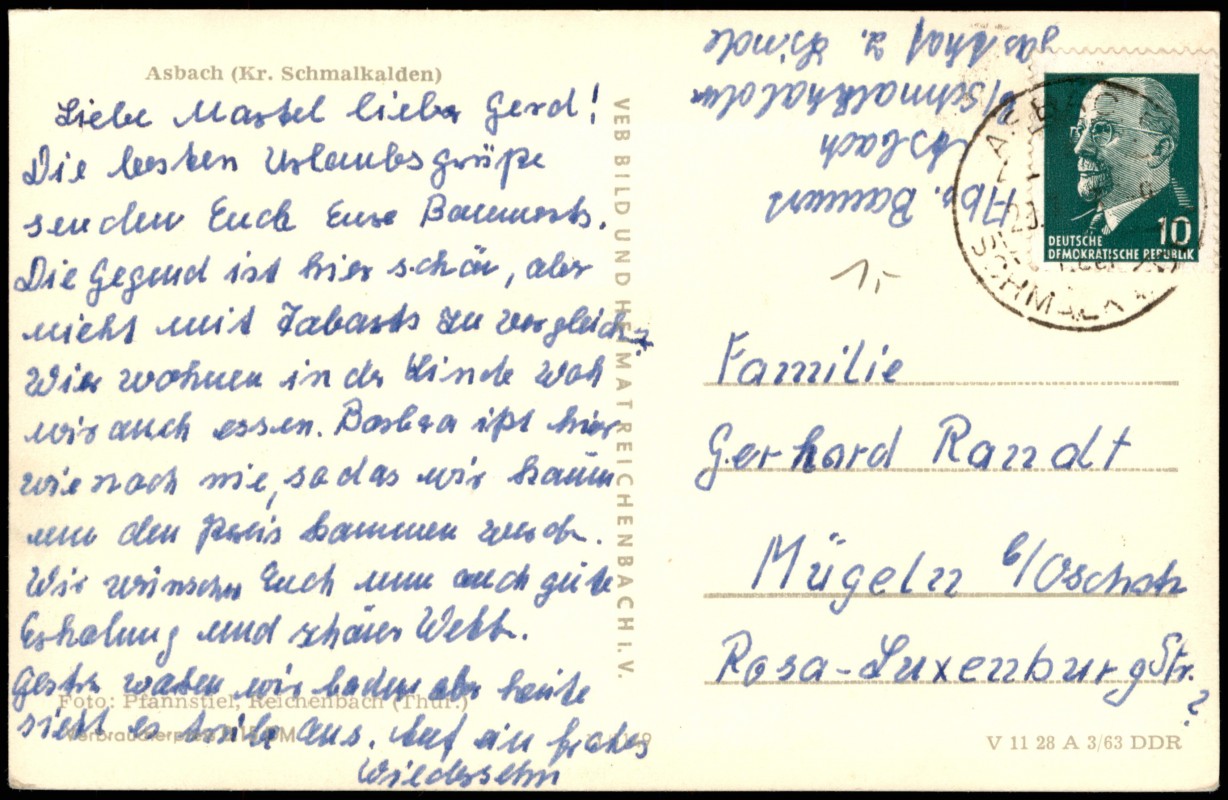 Asbach (Kr. Schmalkalden)
Liebe Martel lieber Gerd!
Die besten Urlaubsgrüße
senden Euch Eure Baumerts.
Die Gegend ist hier schön, aber
nicht mit Tabarts zu vergleich.
Wir wohnen in der Linde woh
wir auch essen. Barbra ißt hier
wie noch nie, sodas wir kaum
um den Preis kommen werdn.
Wir wünschn Euch nun auch gute
Erholung und schönes Wettr.
Gestrn waren wir baden aber heute
sieht es trübe aus. Auf ein frohes
Wiedersehn
Foto: Pfannstiel, Reichenbach (Thür.)
Verbraucherpreis
VEB BILD UND HEIMAT REICHENBACH I. V.
Abs. Baumert
Asbach
b/Schmalkalden
Gasthof z. Linde
DEUTSCHE
DEMOKRATISCHE REPUBLIK
10
ASBACH
SCHMALK
1,-
Familie
Gerhard Randt
Mügeln b/Oschatz
Rosa-Luxenburg Str.
?
V 11 28 A 3/63 DDR